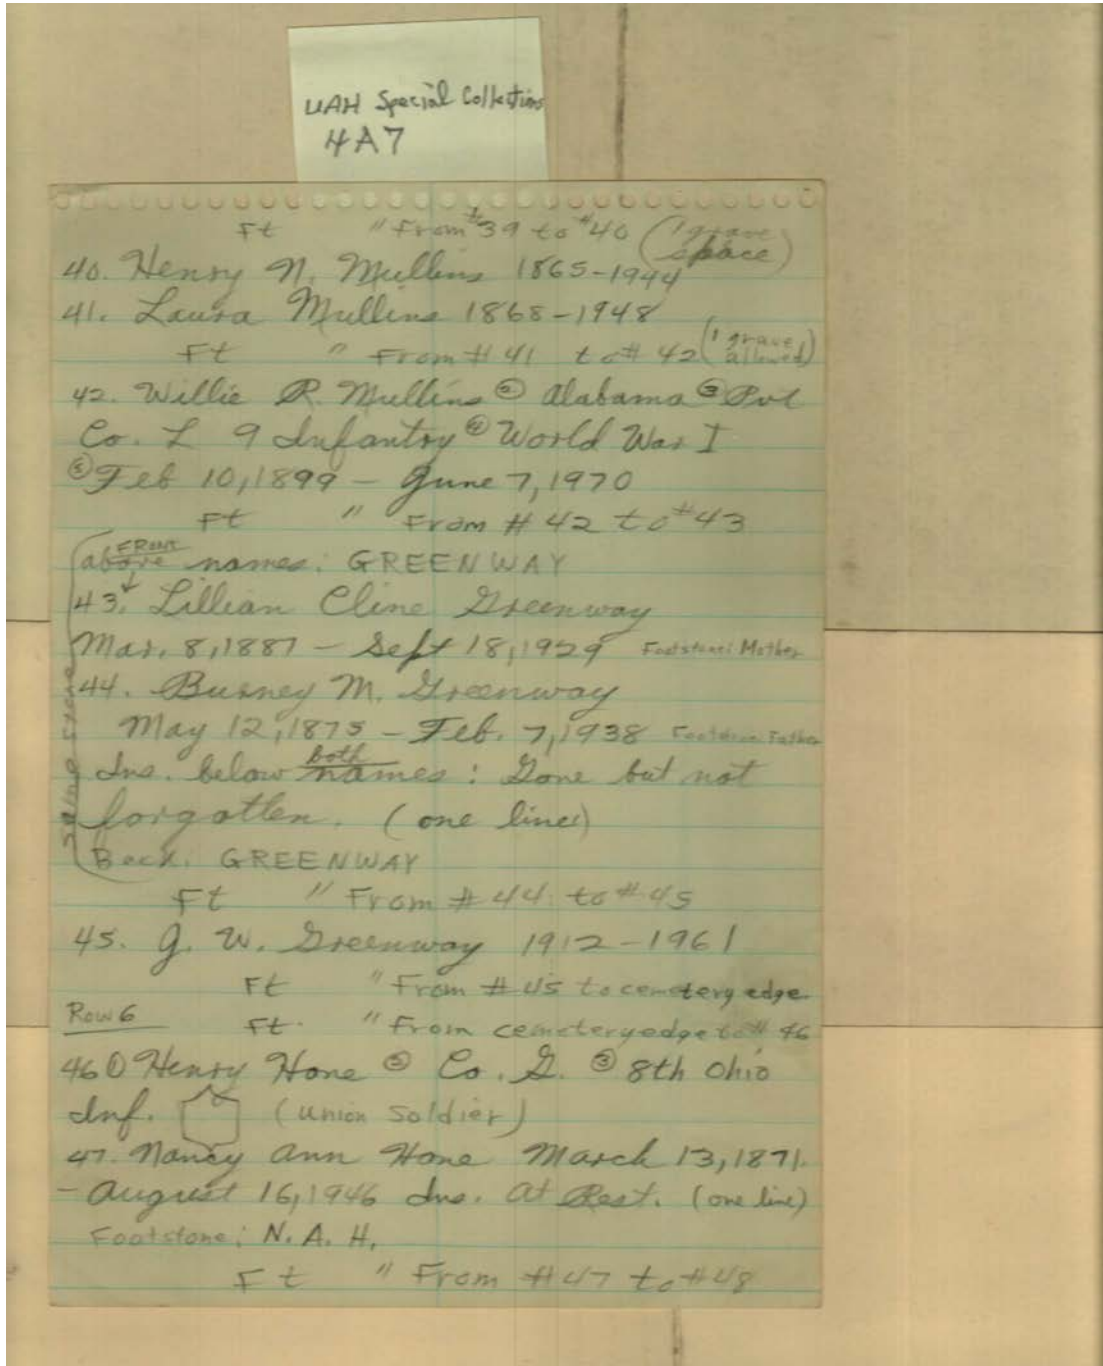 UAH Special Collections
4A7
Ft " From #39 to #40 (1 grave space)
40. Henry N. Mullins 1865-1944
41. Laura Mullins 1868-1948
Ft " From #41 to #42 (1 grave allowed)
42. Willie R. Mullins ② Alabama ③ Pvt
Co. L 9 Infantry ④ World War I
⑤ Feb 10, 1899 - June 7, 1970
Ft " From #42 to #43
FRONT
above names: GREENWAY
43. ↓ Lillian Cline Greenway
Mar. 8, 1887 - Sept 18, 1929 Footstone: Mother
44. Burney M. Greenway
May 12, 1875 - Feb. 7, 1938 Footstone: Father
Ins. below both names: Gone but not
forgotten. (one line)
Back: GREENWAY
Same stone
Ft " From #44 to #45
45. G. W. Greenway 1912-1961
Ft " From #45 to cemetery edge
Row 6 Ft. " From cemetery edge to #46
46 ① Henry Hone ② Co. G. ③ 8th Ohio
Inf. (Union Soldier)
47. Nancy Ann Hone March 13, 1871.
- August 16, 1946 Ins. At Rest. (one line)
Footstone: N. A. H.
Ft " From #47 to #48